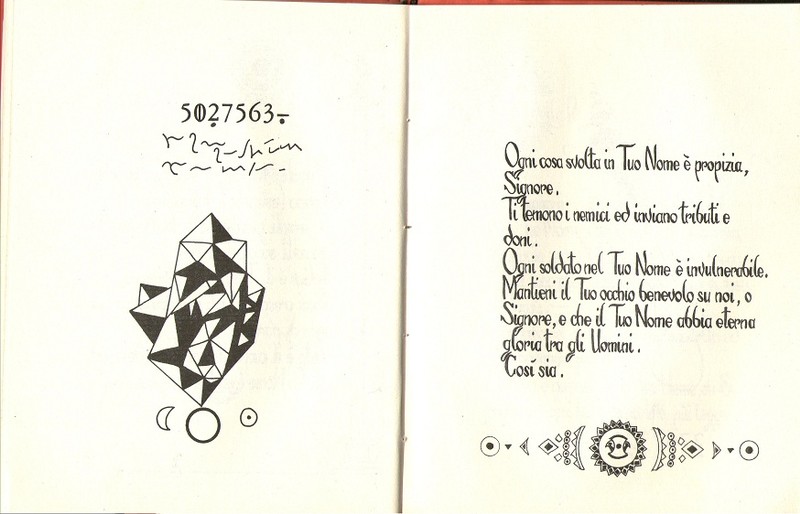 5027563-
Ogni cosa svolta in Tuo Nome è propizia,
Signore.
Ti temono i nemici ed inviano tributi e
doni.
Ogni soldato nel Tuo Nome è invulnerabile.
Mantieni il Tuo occhio benevolo su noi, o
Signore, e che il Tuo Nome abbia eterna
gloria tra gli Uomini.
Così sia.